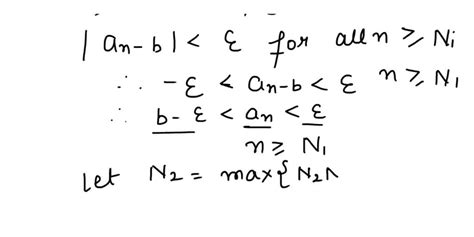 | an - b | < ε for all n ⩾ Ni
∴ - ε < an - b < ε n ⩾ N1
∴ b - ε < an < ε
n ⩾ N1
Let N2 = max{ N2N